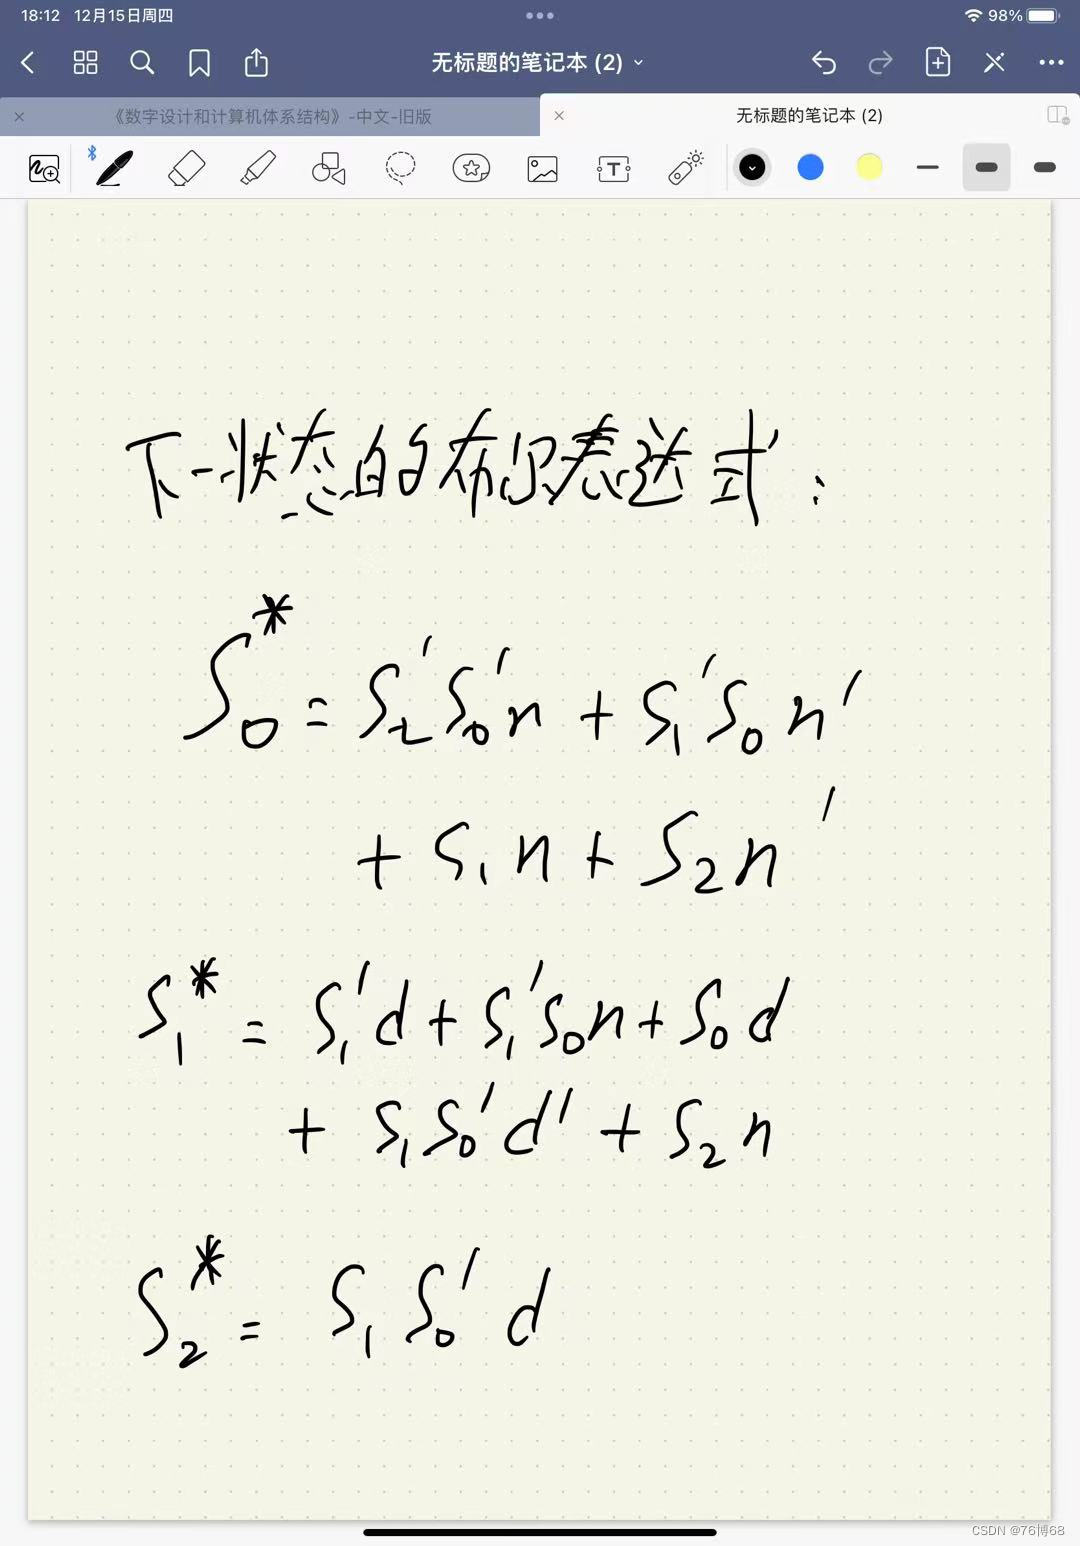 18:12 12月15日周四
98%
无标题的笔记本 (2)
《数字设计和计算机体系结构》-中文-旧版
无标题的笔记本 (2)
T
下一状态的布尔表达式：
S₀* = S₂'S₀'n + S₁'S₀n'
+ S₁n + S₂n'
S₁* = S₁'d + S₁'S₀n + S₀d
+ S₁S₀'d' + S₂n
S₂* = S₁S₀'d
CSDN @76博68